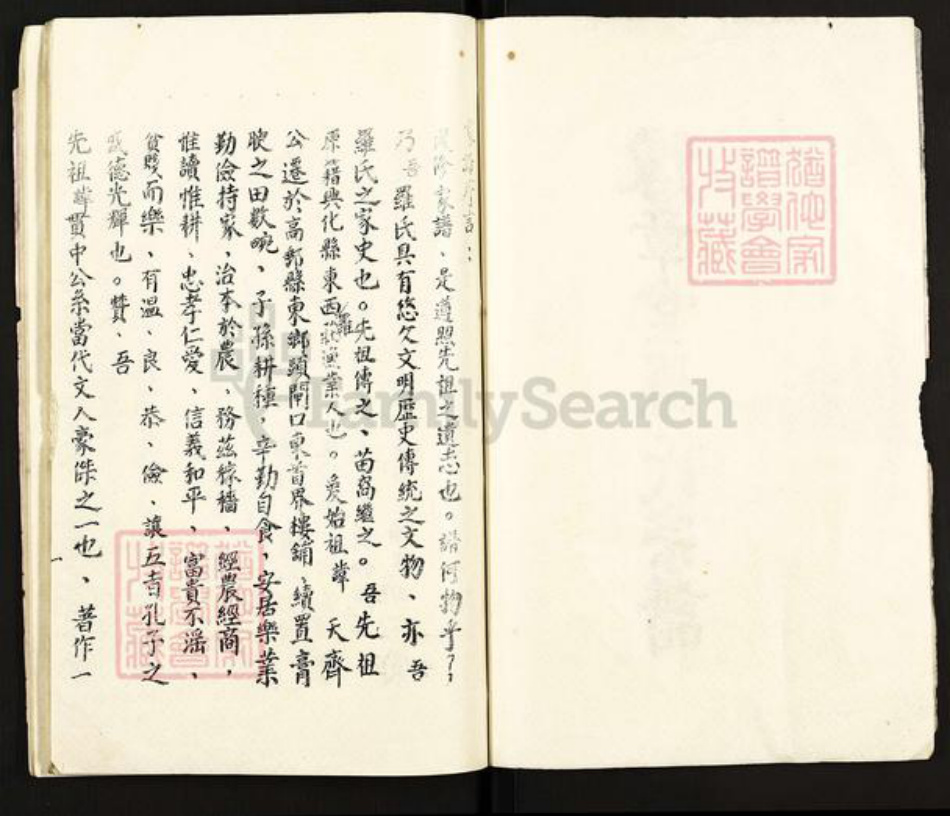 猶他家
譜學會
收藏
言：
家譜、是遵照先祖之遺志也。譜何物乎??
乃吾羅氏具有悠久文明歷史傳統之文物、亦吾
羅氏之家史也。先祖傳之、苗裔繼之。吾先祖
原籍興化縣東西羅 漁業人也。爰始祖諱 天齊
公遷於高郵縣東鄉頭閘口東首界樓鋪、續置膏
腴之田數畹、子孫耕種、辛勤自食、安居樂業
勤儉持家、治本於農、務茲稼穡、經農經商、
惟讀惟耕、忠孝仁愛、信義和平、富貴不滛、
貧賤而樂、有温、良、恭、儉、讓五者孔子之
盛德光輝也。贊、吾
先祖諱貫中公系當代文人豪傑之一也、著作一
猶他家
譜學會
收藏
FamilySearch